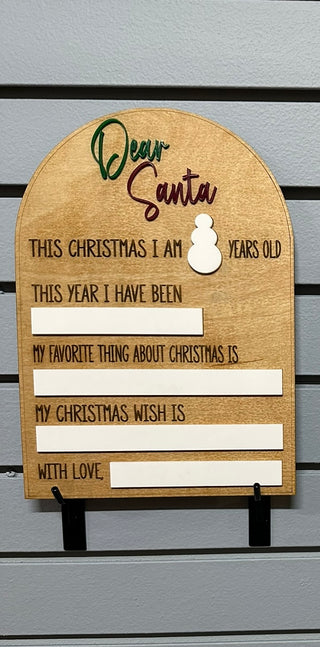 Dear
Santa
THIS CHRISTMAS I AM YEARS OLD
THIS YEAR I HAVE BEEN
MY FAVORITE THING ABOUT CHRISTMAS IS
MY CHRISTMAS WISH IS
WITH LOVE,